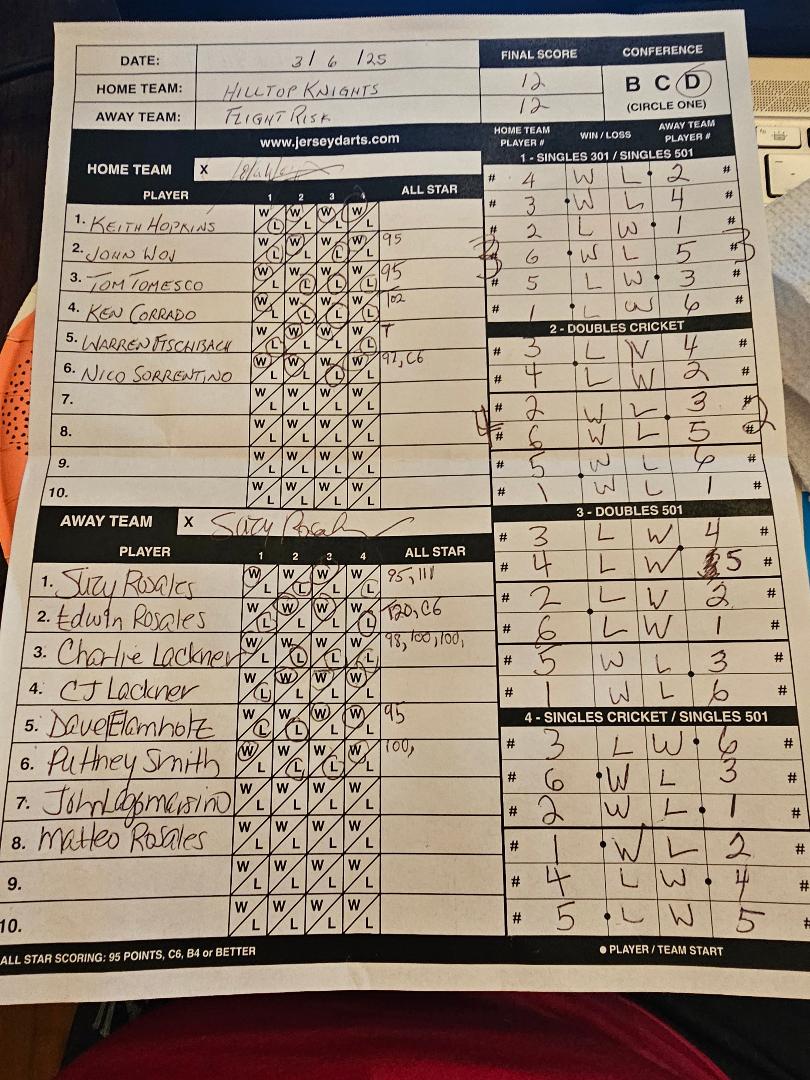 DATE: 3/6/25 FINAL SCORE CONFERENCE
HOME TEAM: HILLTOP KNIGHTS 12 B C D
AWAY TEAM: FLIGHT RISK 12 (CIRCLE ONE)
www.jerseydarts.com HOME TEAM PLAYER # WIN / LOSS AWAY TEAM PLAYER #
HOME TEAM X
PLAYER 1 2 3 4 ALL STAR
1. KEITH HOPKINS W L W L W L W L
2. JOHN WOJ W L W L W L W L 95
3. TOM TOMESCO W L W L W L W L 95
4. KEN CORRADO W L W L W L W L 102
5. WARREN FISCHBACH W L W L W L W L T
6. NICO SORRENTINO W L W L W L W L 92, C6
7. W L W L W L W L
8. W L W L W L W L
9. W L W L W L W L
10. W L W L W L W L
AWAY TEAM X Suzy Rosales
PLAYER 1 2 3 4 ALL STAR
1. Suzy Rosales W L W L W L W L 95, 111
2. Edwin Rosales W L W L W L W L T20, C6
3. Charlie Lackner W L W L W L W L 98, 100, 100,
4. CJ Lackner W L W L W L W L
5. Dave Elamholtz W L W L W L W L 95
6. Puttney Smith W L W L W L W L 100,
7. John Lagomarsino W L W L W L W L
8. Matteo Rosales W L W L W L W L
9. W L W L W L W L
10. W L W L W L W L
1 - SINGLES 301 / SINGLES 501
# 4 W L 2 #
# 3 W L 4 #
# 2 L W 1 #
3 # 6 W L 5 # 3
# 5 L W 3 #
# 1 L W 6 #
2 - DOUBLES CRICKET
# 3 L W 4 #
# 4 L W 2 #
# 2 W L 3 #
4 # 6 W L 5 # 2
# 5 W L 6 #
# 1 W L 1 #
3 - DOUBLES 501
# 3 L W 4 #
# 4 L W 5 #
# 2 L W 2 #
# 6 L W 1 #
# 5 W L 3 #
# 1 W L 6 #
4 - SINGLES CRICKET / SINGLES 501
# 3 L W 6 #
# 6 W L 3 #
# 2 W L 1 #
# 1 W L 2 #
# 4 L W 4 #
# 5 L W 5 #
ALL STAR SCORING: 95 POINTS, C6, B4 or BETTER ● PLAYER / TEAM START